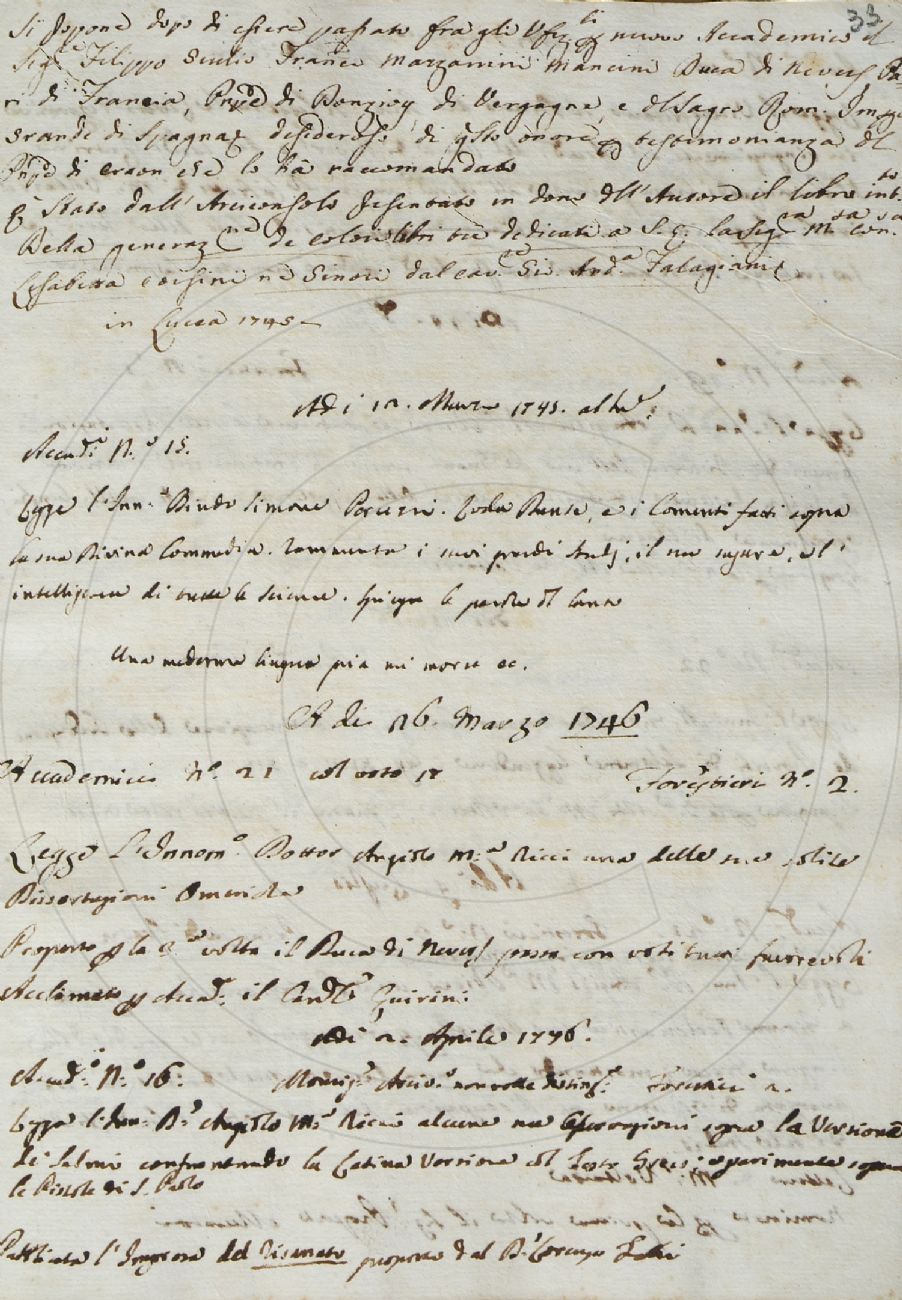 33
Si propone dopo di essere passato fra gli Ufiz.li p nuovo Accademico el
Sig.e Filippo Giulio Franc.o Mazzarini Mancini Duca di Nevers, Pa-
ri di Francia, di Vergagne, e del Sagro Rom. Imp.o
Grande di Spagna, desideroso di qsto onore p testimonianza del
di Craon che lo hà raccomandato
È Stato dall' Arciconsolo Presentato in dono dell' Autore il libro int.to
Della generaz.ne de libri tre dedicati a S. E. la Sig.ra M.sa Con.sa
Lisabetta ne Ginori dal cav.re Gio. And.a
in Lucca 1745
Adi 12. Marzo 1745. ab Inc.e
Accad.i N.o 15.
Legge l'Inn.o Bindo Simone Peruzzi. Loda Dante, e i Comenti fatti sopra
la sua Divina Commedia. Rammenta i suoi grandi Studj, il suo sapere, e l'
intelligenza di tutte le scienze. Spiega le parole del Canto
Una medesma lingua pria mi morse ec.
A di 26. Marzo 1746
Accademici N.o 21 col voto 17
Forestieri N.o 2.
Legge L'Innom.o Dottor Angiolo M.a Ricci una delle sue solite
Dissertazioni Omeriche
Proposto p la 2.a volta il Duca di Nevers passa con voti tutti favorevoli
Acclamato p Accad.o il Card.le Quirini.
Adi 2. Aprile 1746.
Accad.i N.o 16.
Forestieri 2.
Legge l'Inn.o D.r Angiolo M.a Ricci alcune sue osservazioni sopra la Versione
di Salvini confrontando la Latina Versione col Testo Greco; e parimente sopra
le Pistole di S. Paolo
l'Impresa del proposta dal D.r Lorenzo